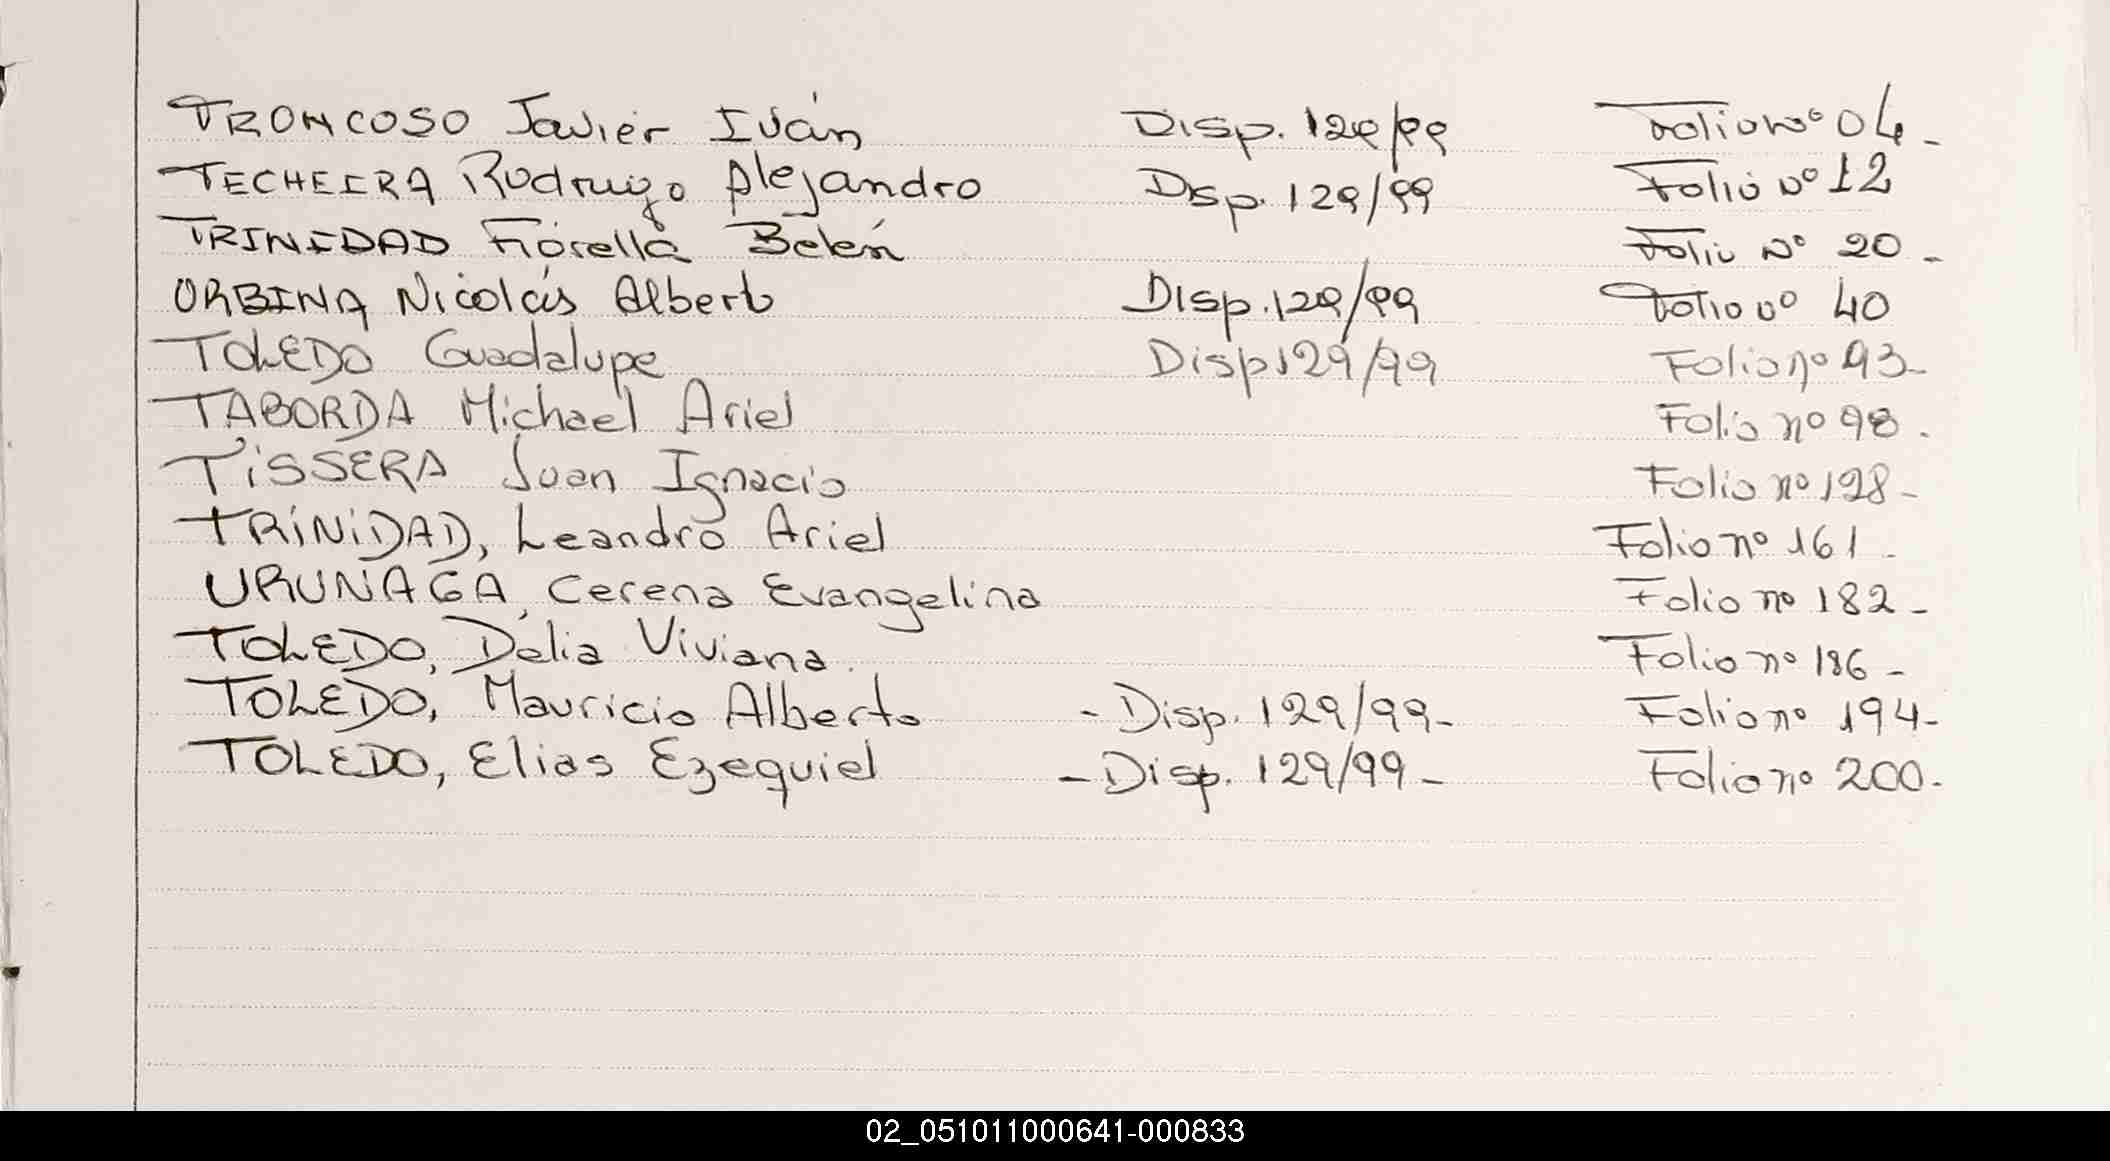 TRONCOSO Javier Iván Disp. 129/99 Folio nº 04-
TECHEIRA Rodrigo Alejandro Disp. 129/99 Folio Nº 12
TRINIDAD Fiorella Belén Folio Nº 20-
ORBINA Nicolás Alberto Disp. 129/99 Folio nº 40
TOLEDO Guadalupe Disp 129/99 Folio nº 93-
TABORDA Michael Ariel Folio nº 98.
TISSERA Juan Ignacio Folio nº 128-
TRINIDAD, Leandro Ariel Folio nº 161-
URUNAGA, Cerena Evangelina Folio nº 182-
TOLEDO, Delia Viviana. Folio nº 186-
TOLEDO, Mauricio Alberto - Disp. 129/99- Folio nº 194-
TOLEDO, Elias Ezequiel - Disp. 129/99- Folio nº 200.
02_051011000641-000833